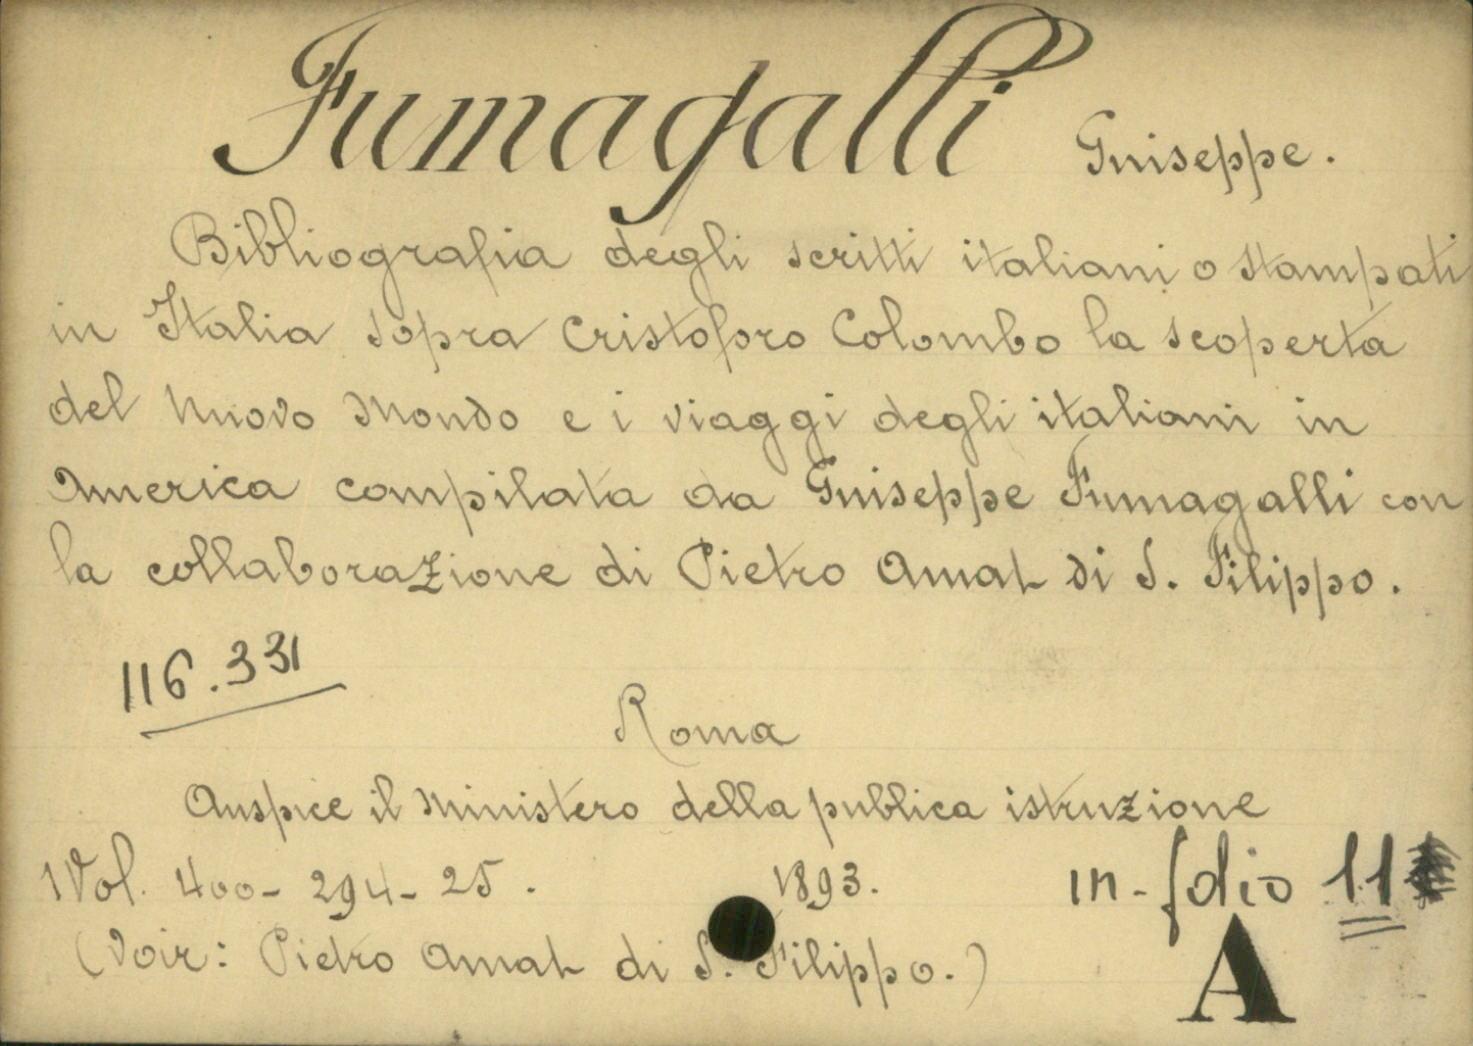 Fumagalli Guiseppe.
Bibliografia degli scritti italiani o stampati
in Italia sopra Cristoforo Colombo la scoperta
del Nuovo Mondo e i viaggi degli italiani in
America compilata da Guiseppe Fumagalli con
la collaborazione di Pietro Amat di S. Filippo.
116.331
Roma
Auspice il Ministero della publica istruzione
1 Vol. 400-294-25. 1893. in-folio 11
(Voir: Pietro Amat di S. Filippo.)
A